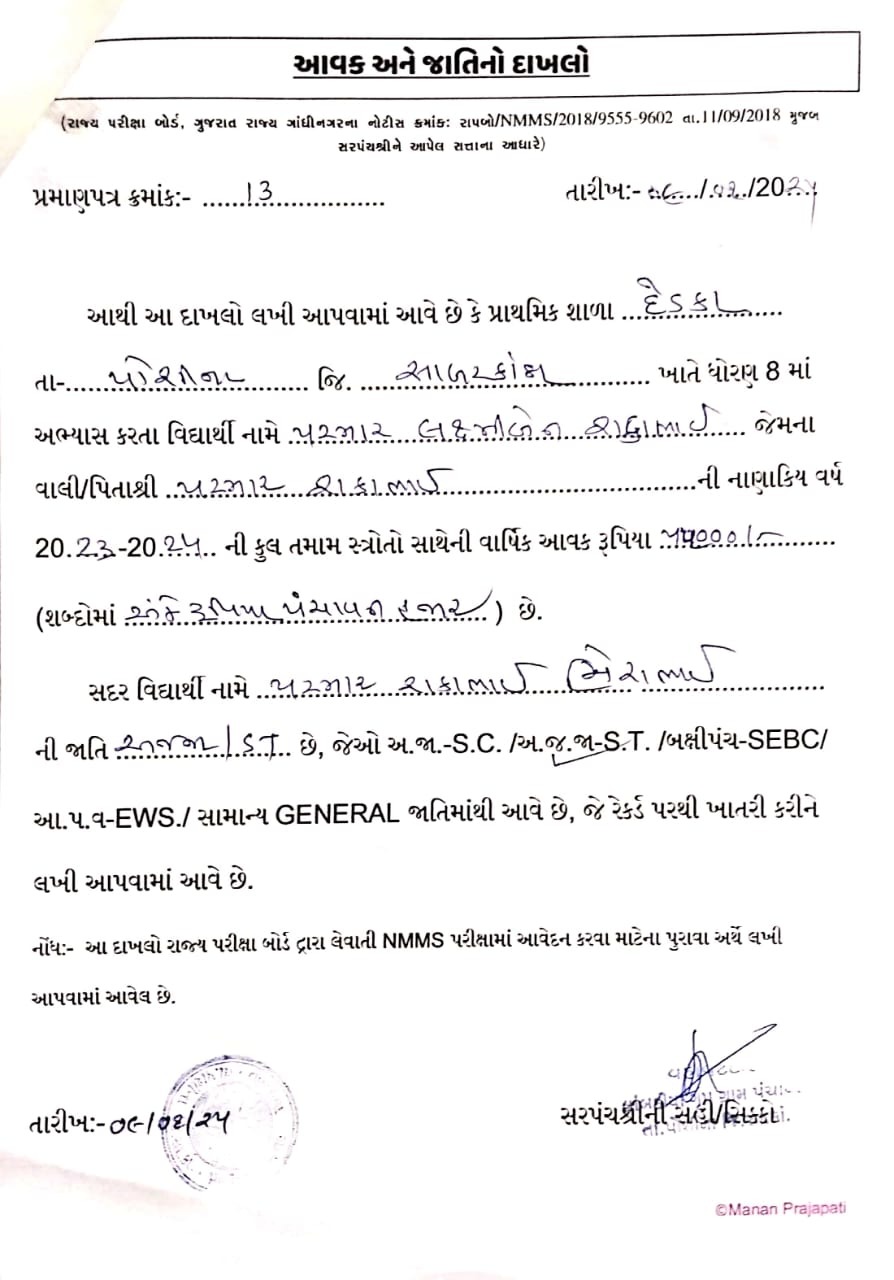 આવક અને જાતિનો દાખલો
(રાજ્ય પરીક્ષા બોર્ડ, ગુજરાત રાજ્ય ગાંધીનગરના નોટીસ ક્રમાંક: રાપબો/NMMS/2018/9555-9602 તા.11/09/2018 મુજબ
સરપંચશ્રીને આપેલ સત્તાના આધારે)
પ્રમાણપત્ર ક્રમાંક:- ......13..................... તારીખ:- ..../.../20
આથી આ દાખલો લખી આપવામાં આવે છે કે પ્રાથમિક શાળા ...દેડકા...
તા-...પોશીના... જિ. ...સાબરકાંઠા... ખાતે ધોરણ 8 માં
અભ્યાસ કરતા વિદ્યાર્થી નામે ..પરમાર લક્ષ્મીબેન... જેમના
વાલી/પિતાશ્રી ..પરમાર શકાભાઈ...ની નાણાકિય વર્ષ
20.23-20.24.. ની કુલ તમામ સ્ત્રોતો સાથેની વાર્ષિક આવક રૂપિયા ૫૫૦૦૦/-...
(શબ્દોમાં અંકે રૂપિયા પંચાવન હજાર) છે.
સદર વિદ્યાર્થી નામે ..પરમાર શકાભાઈ...
ની જાતિ અજજા/ST.. છે, જેઓ અ.જા.-S.C. /અ.જ.જા-S.T. /બક્ષીપંચ-SEBC/
આ.પ.વ-EWS./ સામાન્ય GENERAL જાતિમાંથી આવે છે, જે રેકર્ડ પરથી ખાતરી કરીને
લખી આપવામાં આવે છે.
નોંધ:- આ દાખલો રાજ્ય પરીક્ષા બોર્ડ દ્વારા લેવાતી NMMS પરીક્ષામાં આવેદન કરવા માટેના પુરાવા અર્થે લખી
આપવામાં આવેલ છે.
તારીખ:- સરપંચશ્રીની સહી/સિક્કો
©Manan Prajapati